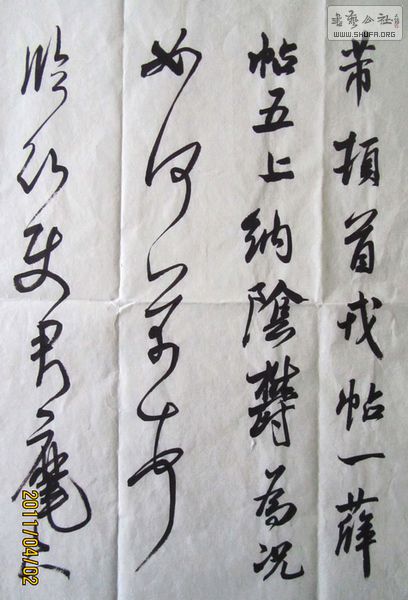 芾頓首戎帖一薛
帖五上納陰鬱為況
如何芾頓首
臨沂使君麾下
書藝公社
WWW.SHUFA.ORG
2011/04/02